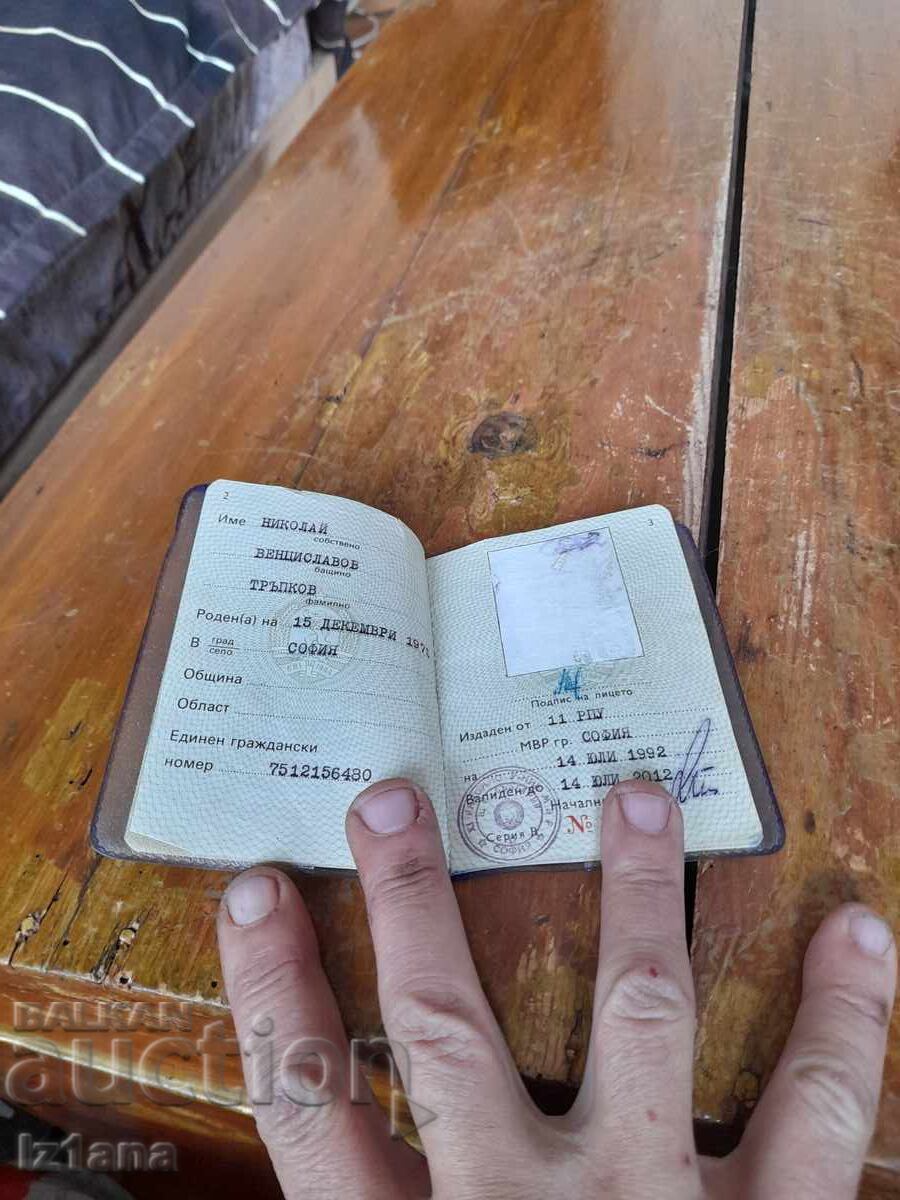 2
Име НИКОЛАЙ
собствено
ВЕНЦИСЛАВОВ
бащино
ТРЪПКОВ
фамилно
Роден(а) на 15 ДЕКЕМВРИ
В град
село СОФИЯ
Община
Област
Единен граждански
номер 7512156480
3
Подпис на лицето
Издаден от 11 РПУ
МВР гр. СОФИЯ
на 14 ЮЛИ 1992
Валиден до 14 ЮЛИ 2012
Началник
Серия В №
СОФИЯ
BALKAN
auction
Iz1ana